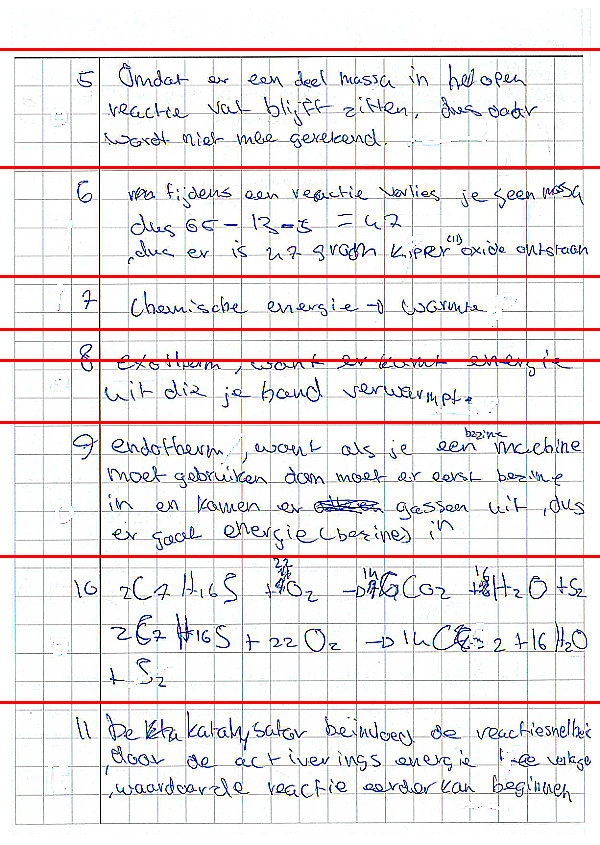 5 Omdat er een deel massa in het open
reactie vat blijft zitten, dus daar
wordt niet mee gerekend.
6 tijdens een reactie verlies je geen massa
dus 65 - 13 - 5 = 47
,dus er is 47 gram kipper (II) oxide ontstaan
7 Chemische energie → warmte
8 exotherm, want er komt energie
uit die je hand verwarmpt.
9 endotherm, want als je een bezine machine
moet gebruiken dan moet er eerst bezine
in en komen er gassen uit, dus
er gaat energie (bezine) in
10 2C7H16S + 22 O2 → 14 CO2 + 16 H2O + S2
2C7H16S + 22 O2 → 14 CO2 + 16 H2O
+ S2
11 De katalysator beinvloed de reactiesnelheid
,door de activerings energie te verlage
,waardoor de reactie eerder kan beginnen